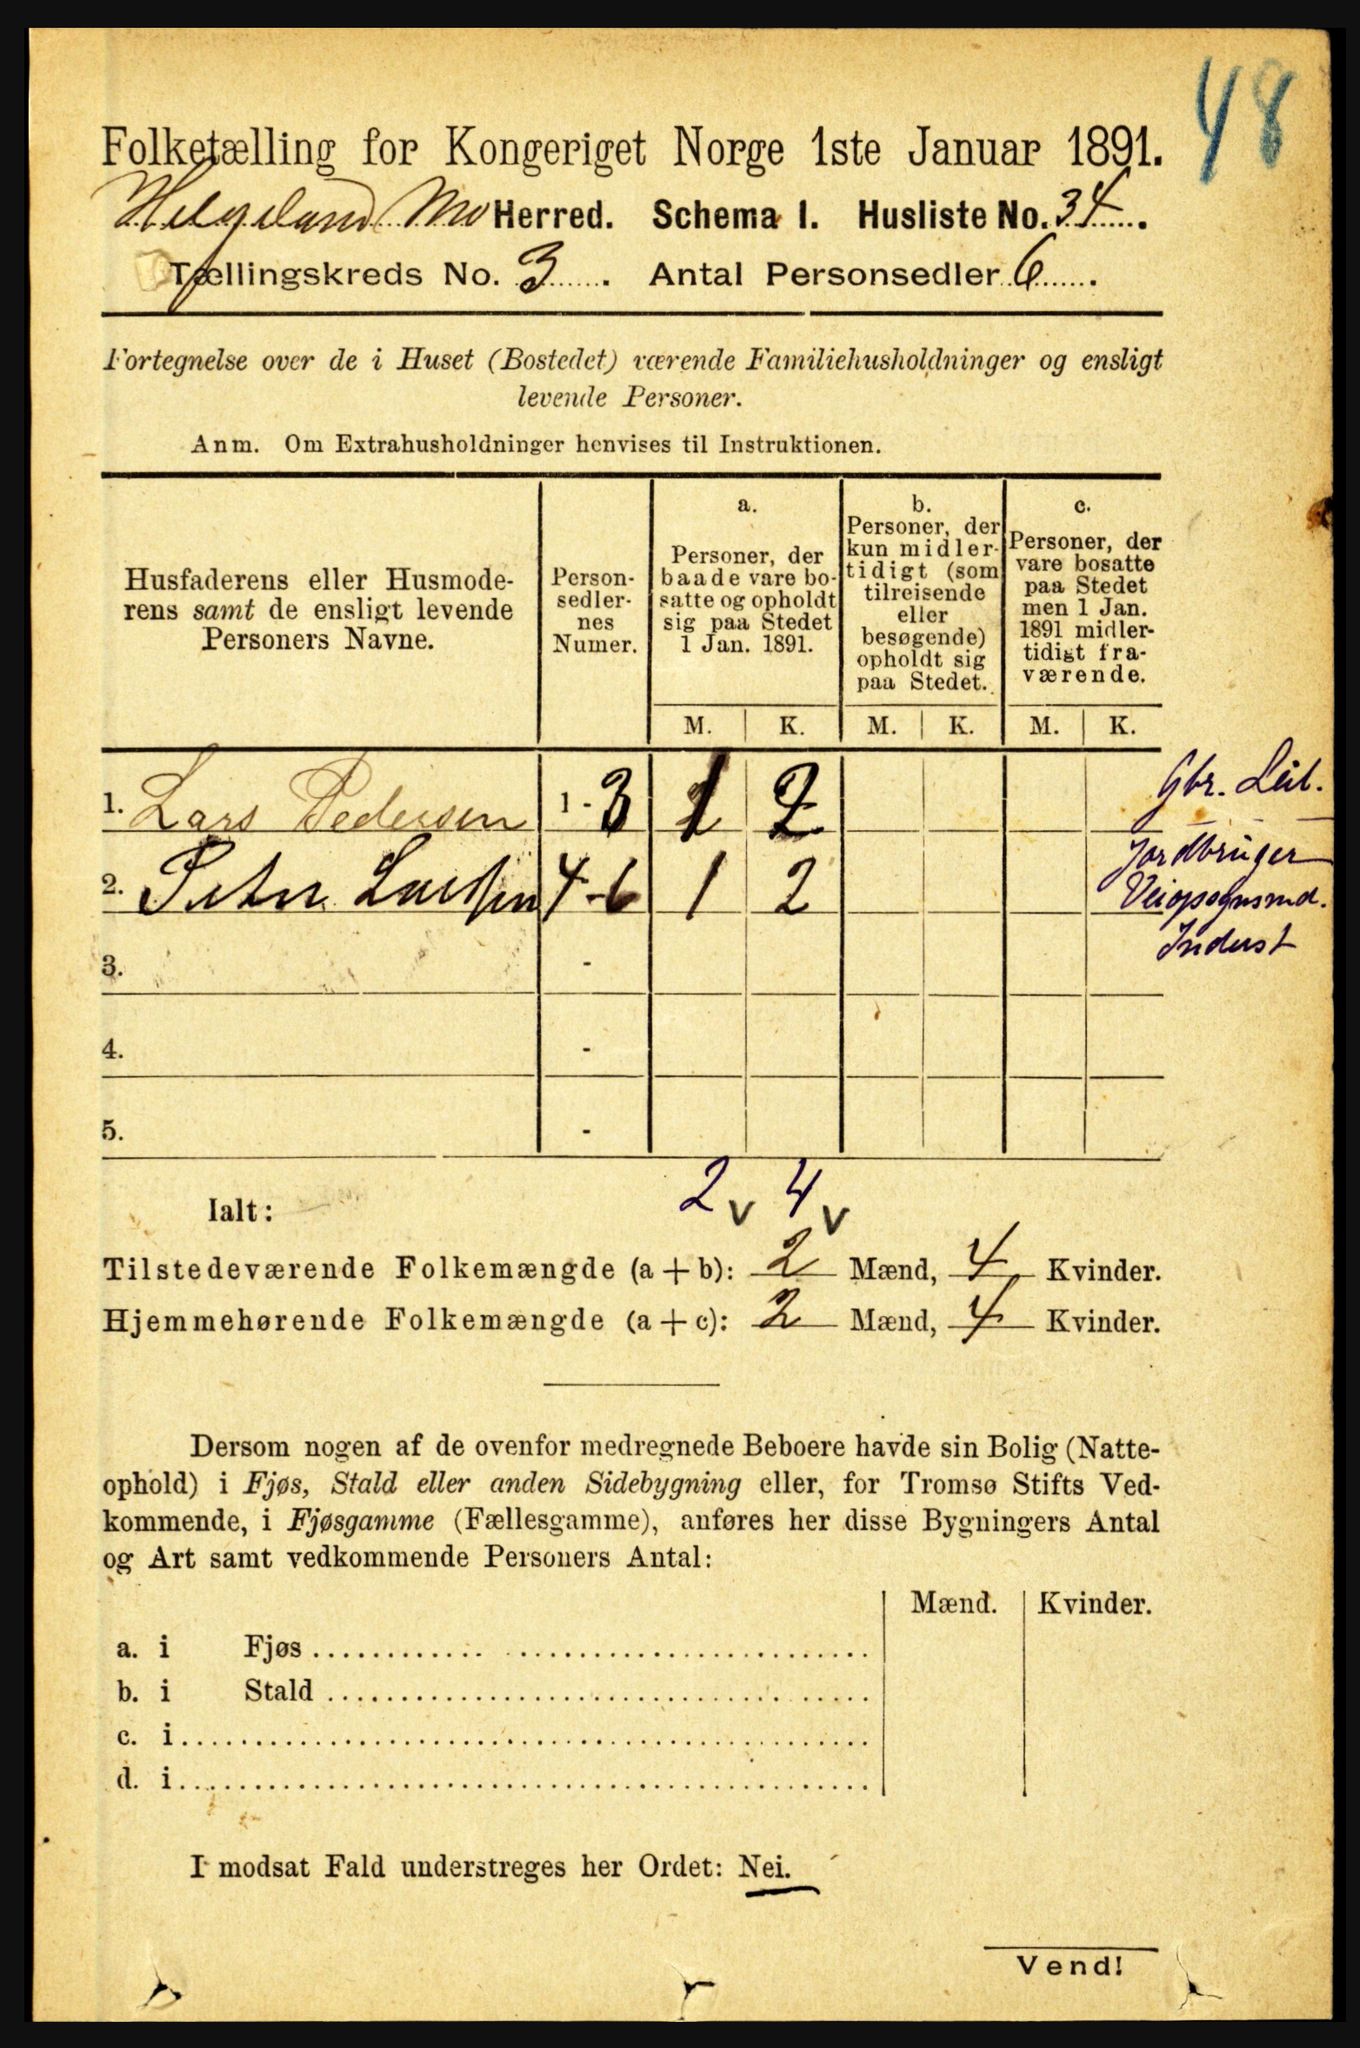 48
Folketælling for Kongeriget Norge 1ste Januar 1891.
Helgeland Mo Herred. Schema I. Husliste No. 34.
Tællingskreds No. 3. Antal Personsedler 6.
Fortegnelse over de i Huset (Bostedet) værende Familiehusholdninger og ensligt
levende Personer.
Anm. Om Extrahusholdninger henvises til Instruktionen.
Husfaderens eller Husmode-
rens samt de ensligt levende
Personers Navne.
Person-
sedler-
nes
Numer.
a.
Personer, der
baade vare bo-
satte og opholdt
sig paa Stedet
1 Jan. 1891.
b.
Personer, der
kun midler-
tidigt (som
tilreisende
eller
besøgende)
opholdt sig
paa Stedet.
c.
Personer, der
vare bosatte
paa Stedet
men 1 Jan.
1891 midler-
tidigt fra-
værende.
M. K. M. K. M. K.
1. Lars Pedersen 1-3 1 2
Gbr. Leil.
Jordbruger
2. Peter Larsen 4-6 1 2
Indust
3. -
4. -
5. -
Ialt: 2 v 4 v
Tilstedeværende Folkemængde (a+b): 2 Mænd, 4 Kvinder.
Hjemmehørende Folkemængde (a+c): 2 Mænd, 4 Kvinder.
Dersom nogen af de ovenfor medregnede Beboere havde sin Bolig (Natte-
ophold) i Fjøs, Stald eller anden Sidebygning eller, for Tromsø Stifts Ved-
kommende, i Fjøsgamme (Fællesgamme), anføres her disse Bygningers Antal
og Art samt vedkommende Personers Antal:
Mænd. Kvinder.
a. i Fjøs
b. i Stald
c. i
d. i
I modsat Fald understreges her Ordet: Nei.
Vend!